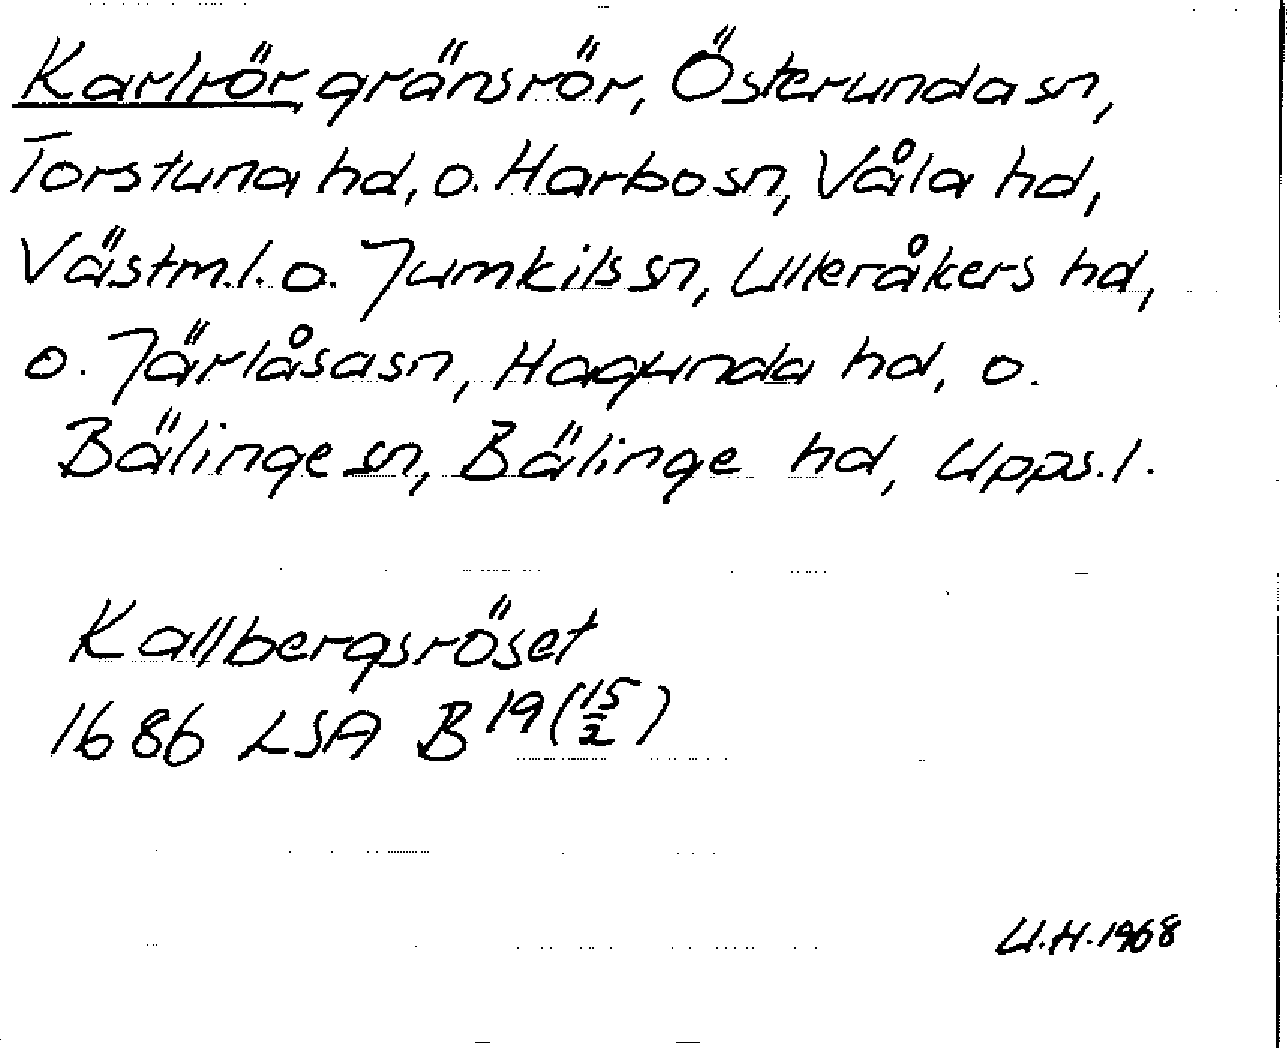 Karlrör gränsrör, Österunda sn,
Torstuna hd, o. Harbo sn, Våla hd,
Västm.l. o. Jumkils sn, Ulleråkers hd,
o. Järlåsa sn, Hagunda hd, o.
Bälinge sn, Bälinge hd, Upps.l.
Kallbergsröset
1686 LSA B 19 (15/2)
U.H. 1968